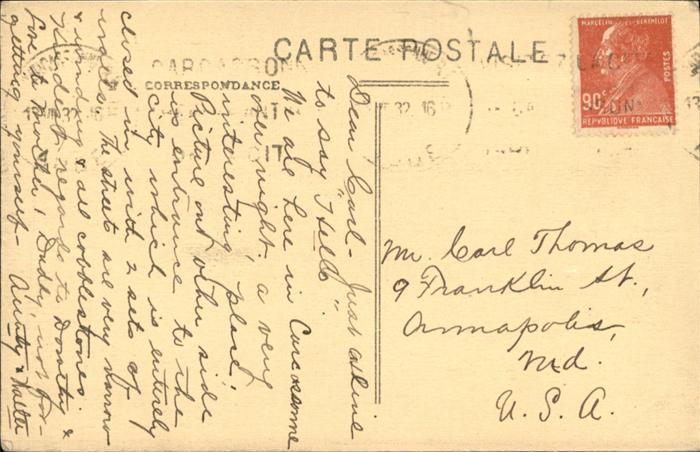 CARTE POSTALE
CORRESPONDANCE
MARCELIN BERTHELOT
POSTES
90c
REPVBLIQVE FRANCAISE
CARCASSONNE
32. 16
Dear Carl - Just a line
to say "Hello".
We are here in Carcassonne
over night. a very
interesting place.
Picture out other side
is entrance to the
city which is entirely
closed in with 2 sets of
walls. The streets are very narrow
& winding & all cobblestones.
Kindest regards to Dorothy &
love to Mother, Dudley, not for-
getting yourself - Aunty & Walter
Mr. Carl Thomas
9 Franklin St.,
Annapolis,
Md.
U. S. A.